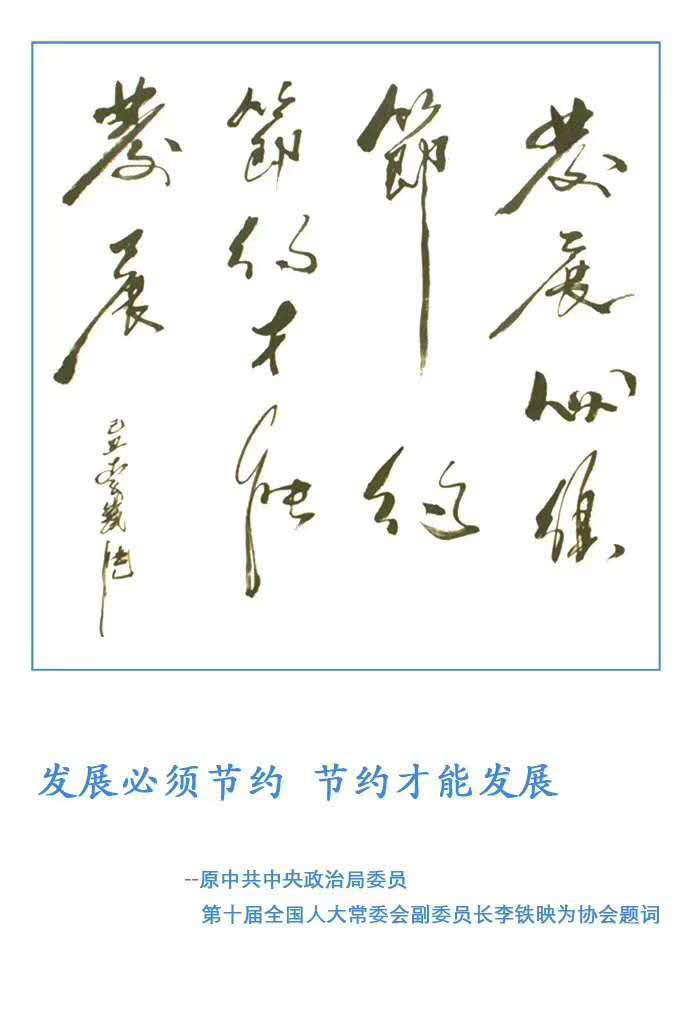 發展必須
節約
節約才能
發展
发展必须节约 节约才能发展
--原中共中央政治局委员
第十届全国人大常委会副委员长李铁映为协会题词